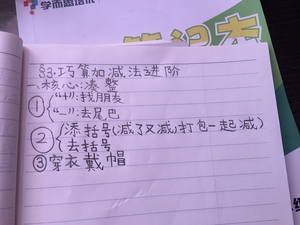 学而思培优
笔记本
§3·巧算加减法进阶
一、核心:凑整
①{"+":找朋友
"-":去尾巴
②{添括号(减了又减,打包一起减)
去括号
③穿衣戴帽